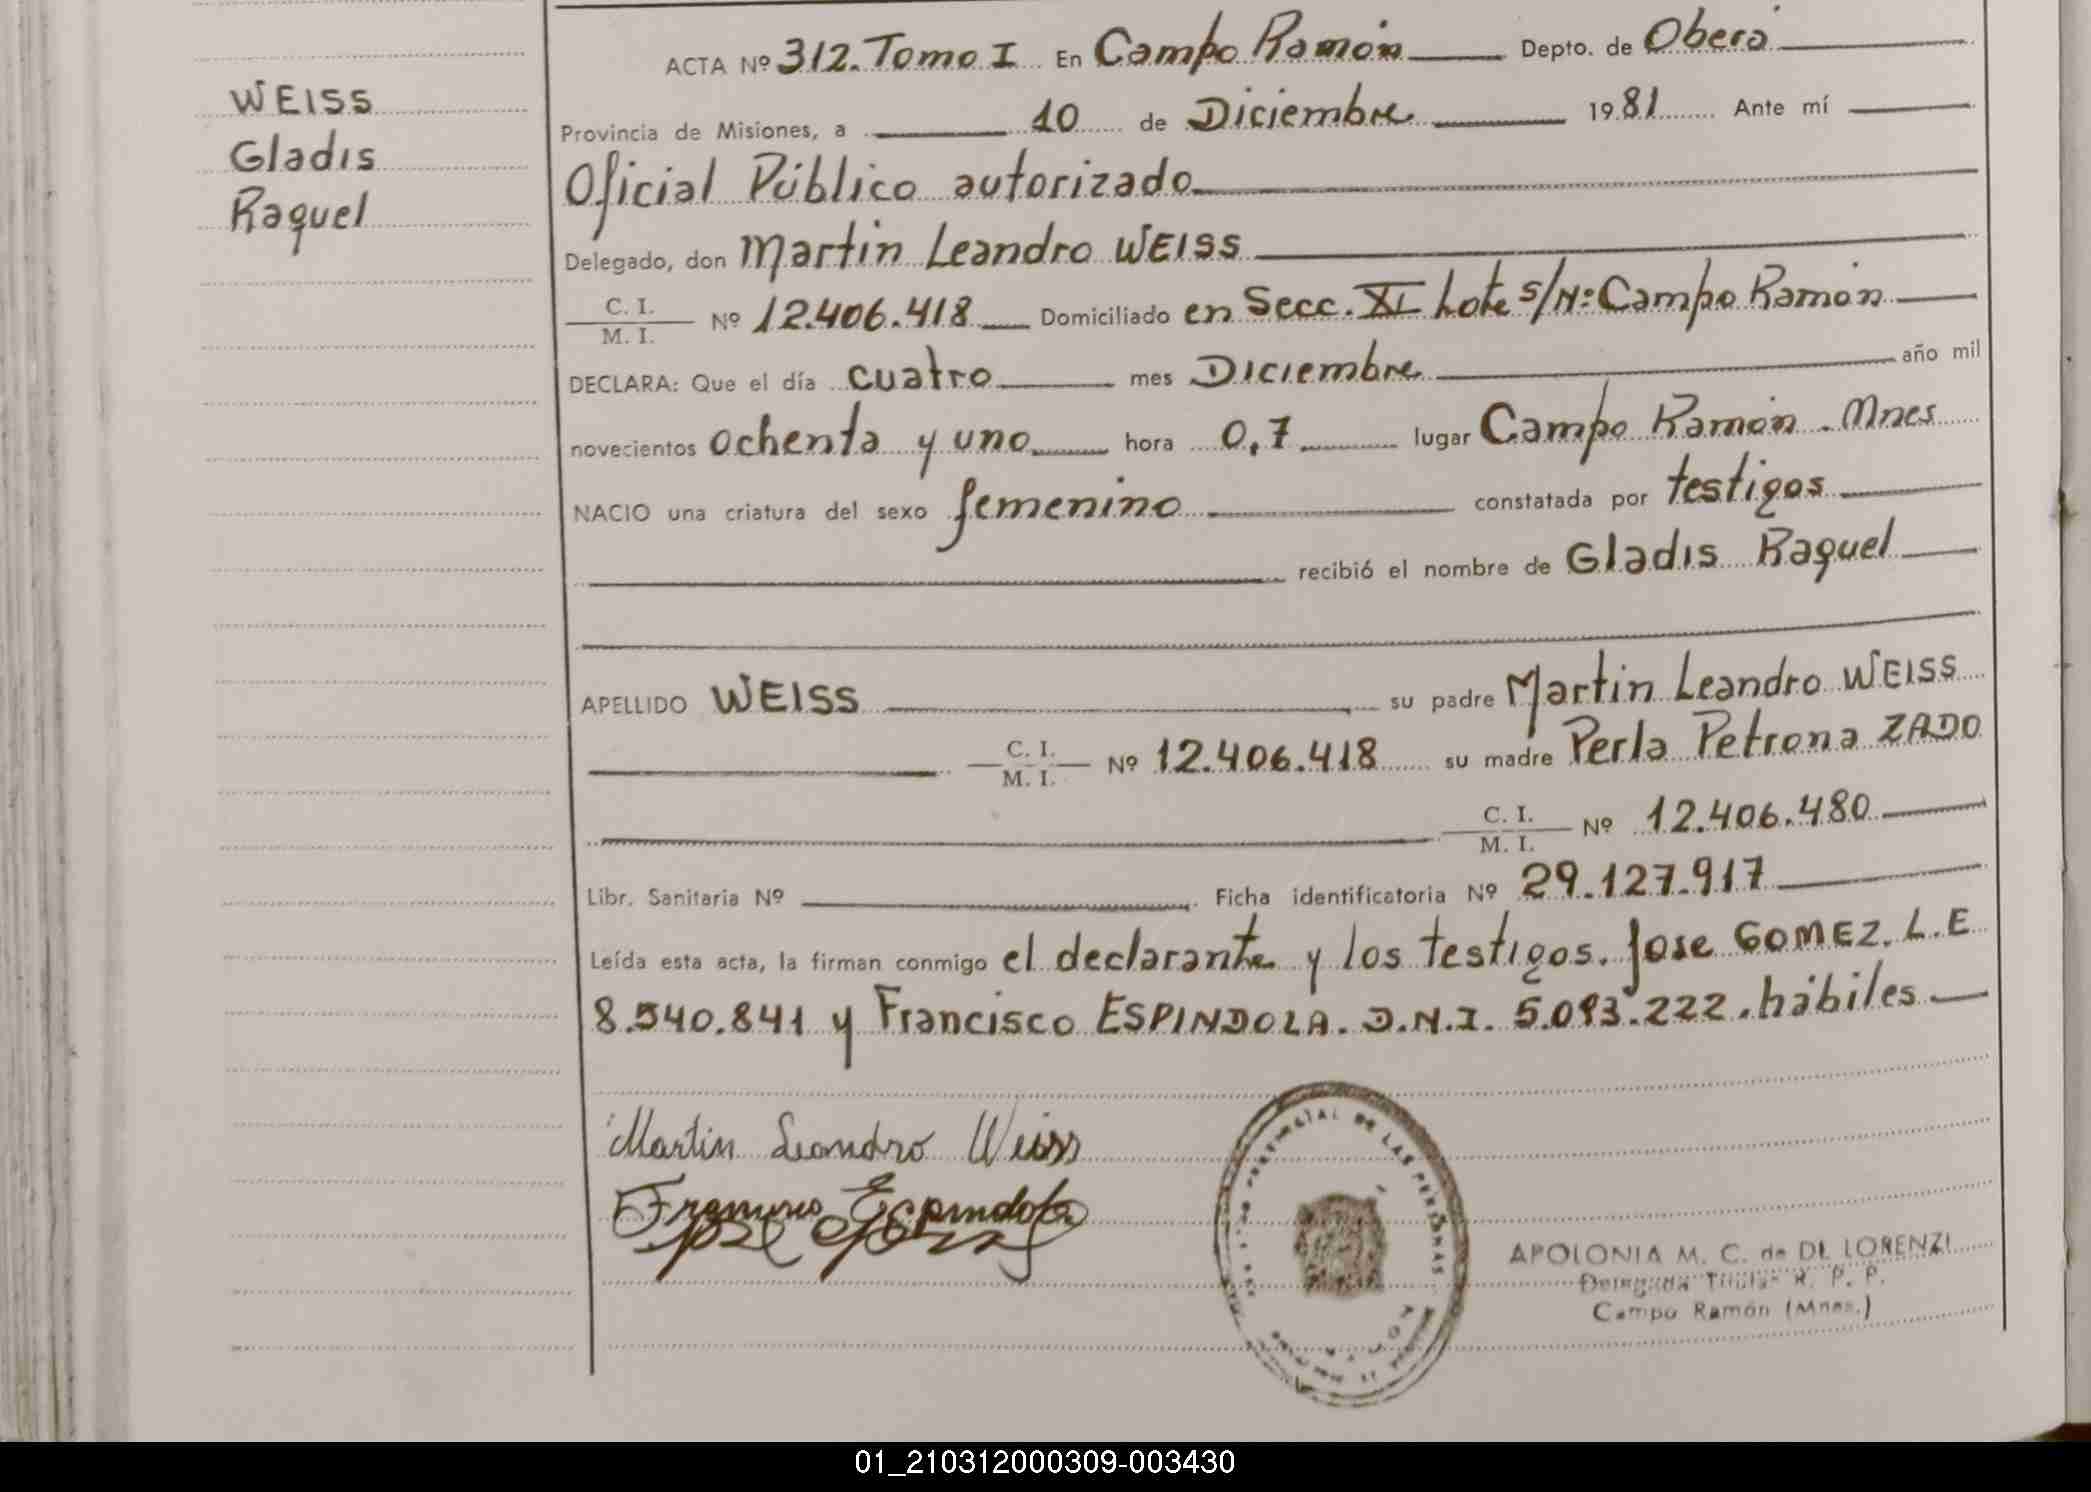 WEISS
Gladis
Raquel
ACTA Nº 312. Tomo I En Campo Ramón Depto. de Oberá
Provincia de Misiones, a 10 de Diciembre 1981 Ante mí
Oficial Público autorizado
Delegado, don Martin Leandro WEISS
C. I.
M. I. Nº 12.406.418 Domiciliado en Secc. XI Lote S/Nº Campo Ramón
DECLARA: Que el día cuatro mes Diciembre año mil
novecientos ochenta y uno hora 0,7 lugar Campo Ramón. Mnes
NACIO una criatura del sexo femenino constatada por testigos
recibió el nombre de Gladis Raquel
APELLIDO WEISS su padre Martin Leandro WEISS
C. I.
M. I. Nº 12.406.418 su madre Perla Petrona ZADO
C. I.
M. I. Nº 12.406.480
Libr. Sanitaria Nº Ficha identificatoria Nº 29.127.917
Leída esta acta, la firman conmigo el declarante y los testigos. Jose GOMEZ. L.E
8.540.841 y Francisco ESPINDOLA. D.N.I. 5.093.222. hábiles
Martin Leandro Weiss
Espindola
DE LAS PERSONAS
APOLONIA M. C. de DE LORENZI
Delegada Titular R. P. P.
Campo Ramón (Mnes.)
01_210312000309-003430